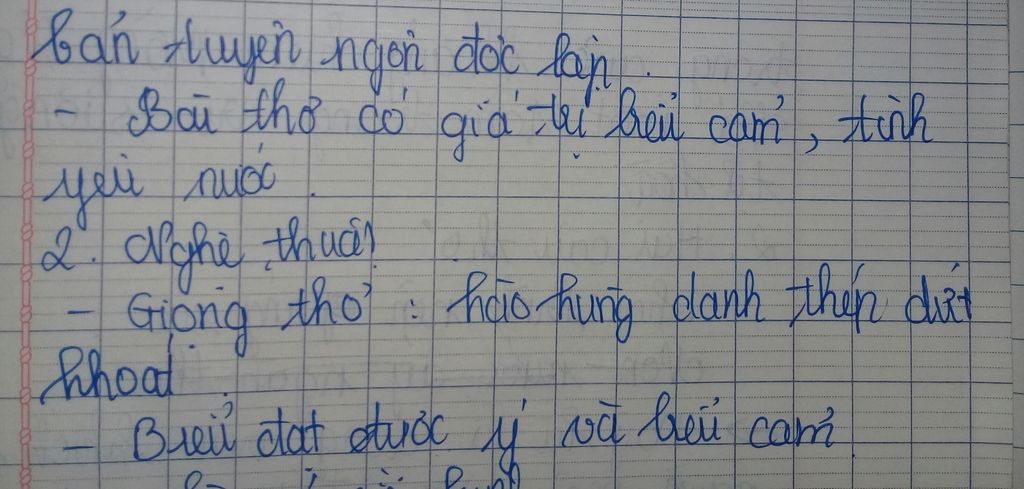 bản tuyên ngôn độc lập.
- Bài thơ có giá trị biểu cảm, tình
yêu nước.
2. Nghệ thuật
- Giọng thơ : hào hùng danh thép dứt
khoát
- Biểu đạt được ý và biểu cảm